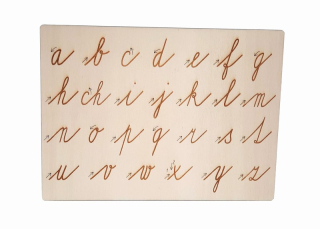 a b c d e f g
h ch i j k l m
n o p q r s t
u v w x y z